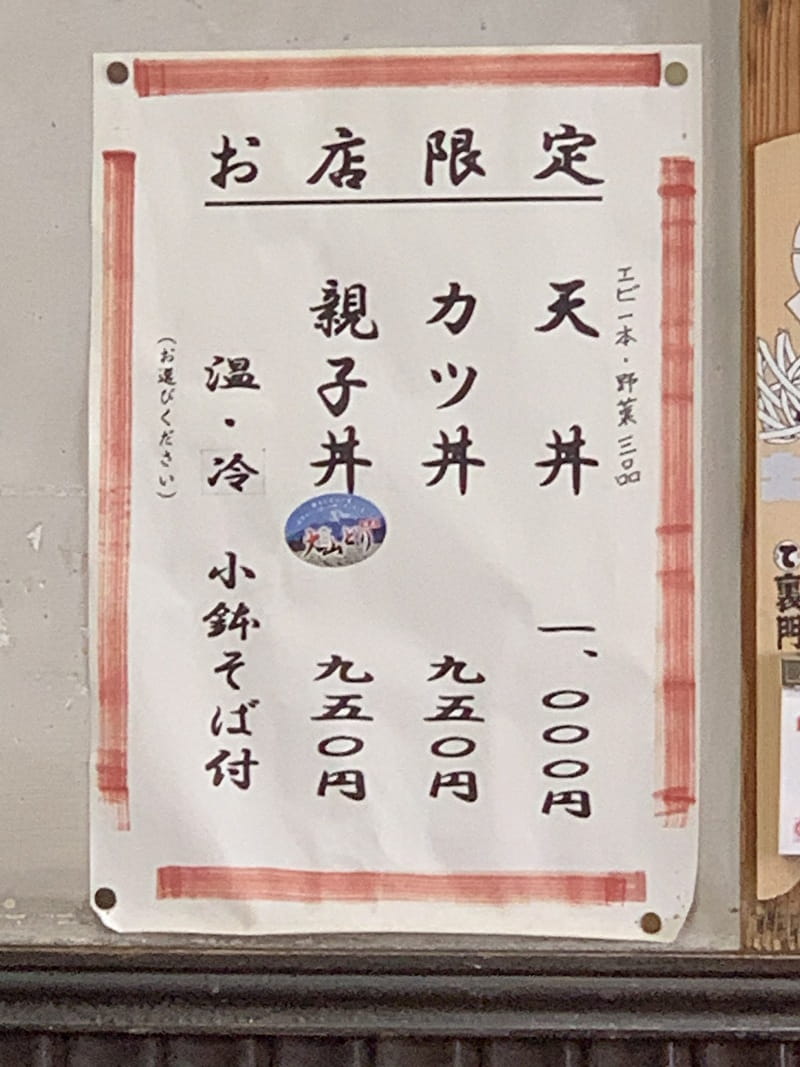 お店限定
エビ一本・野菜三品
天丼 一、〇〇〇円
カツ丼 九五〇円
親子丼 九五〇円
大山どり
温・冷 小鉢そば付
(お選びください)
て
裏
門